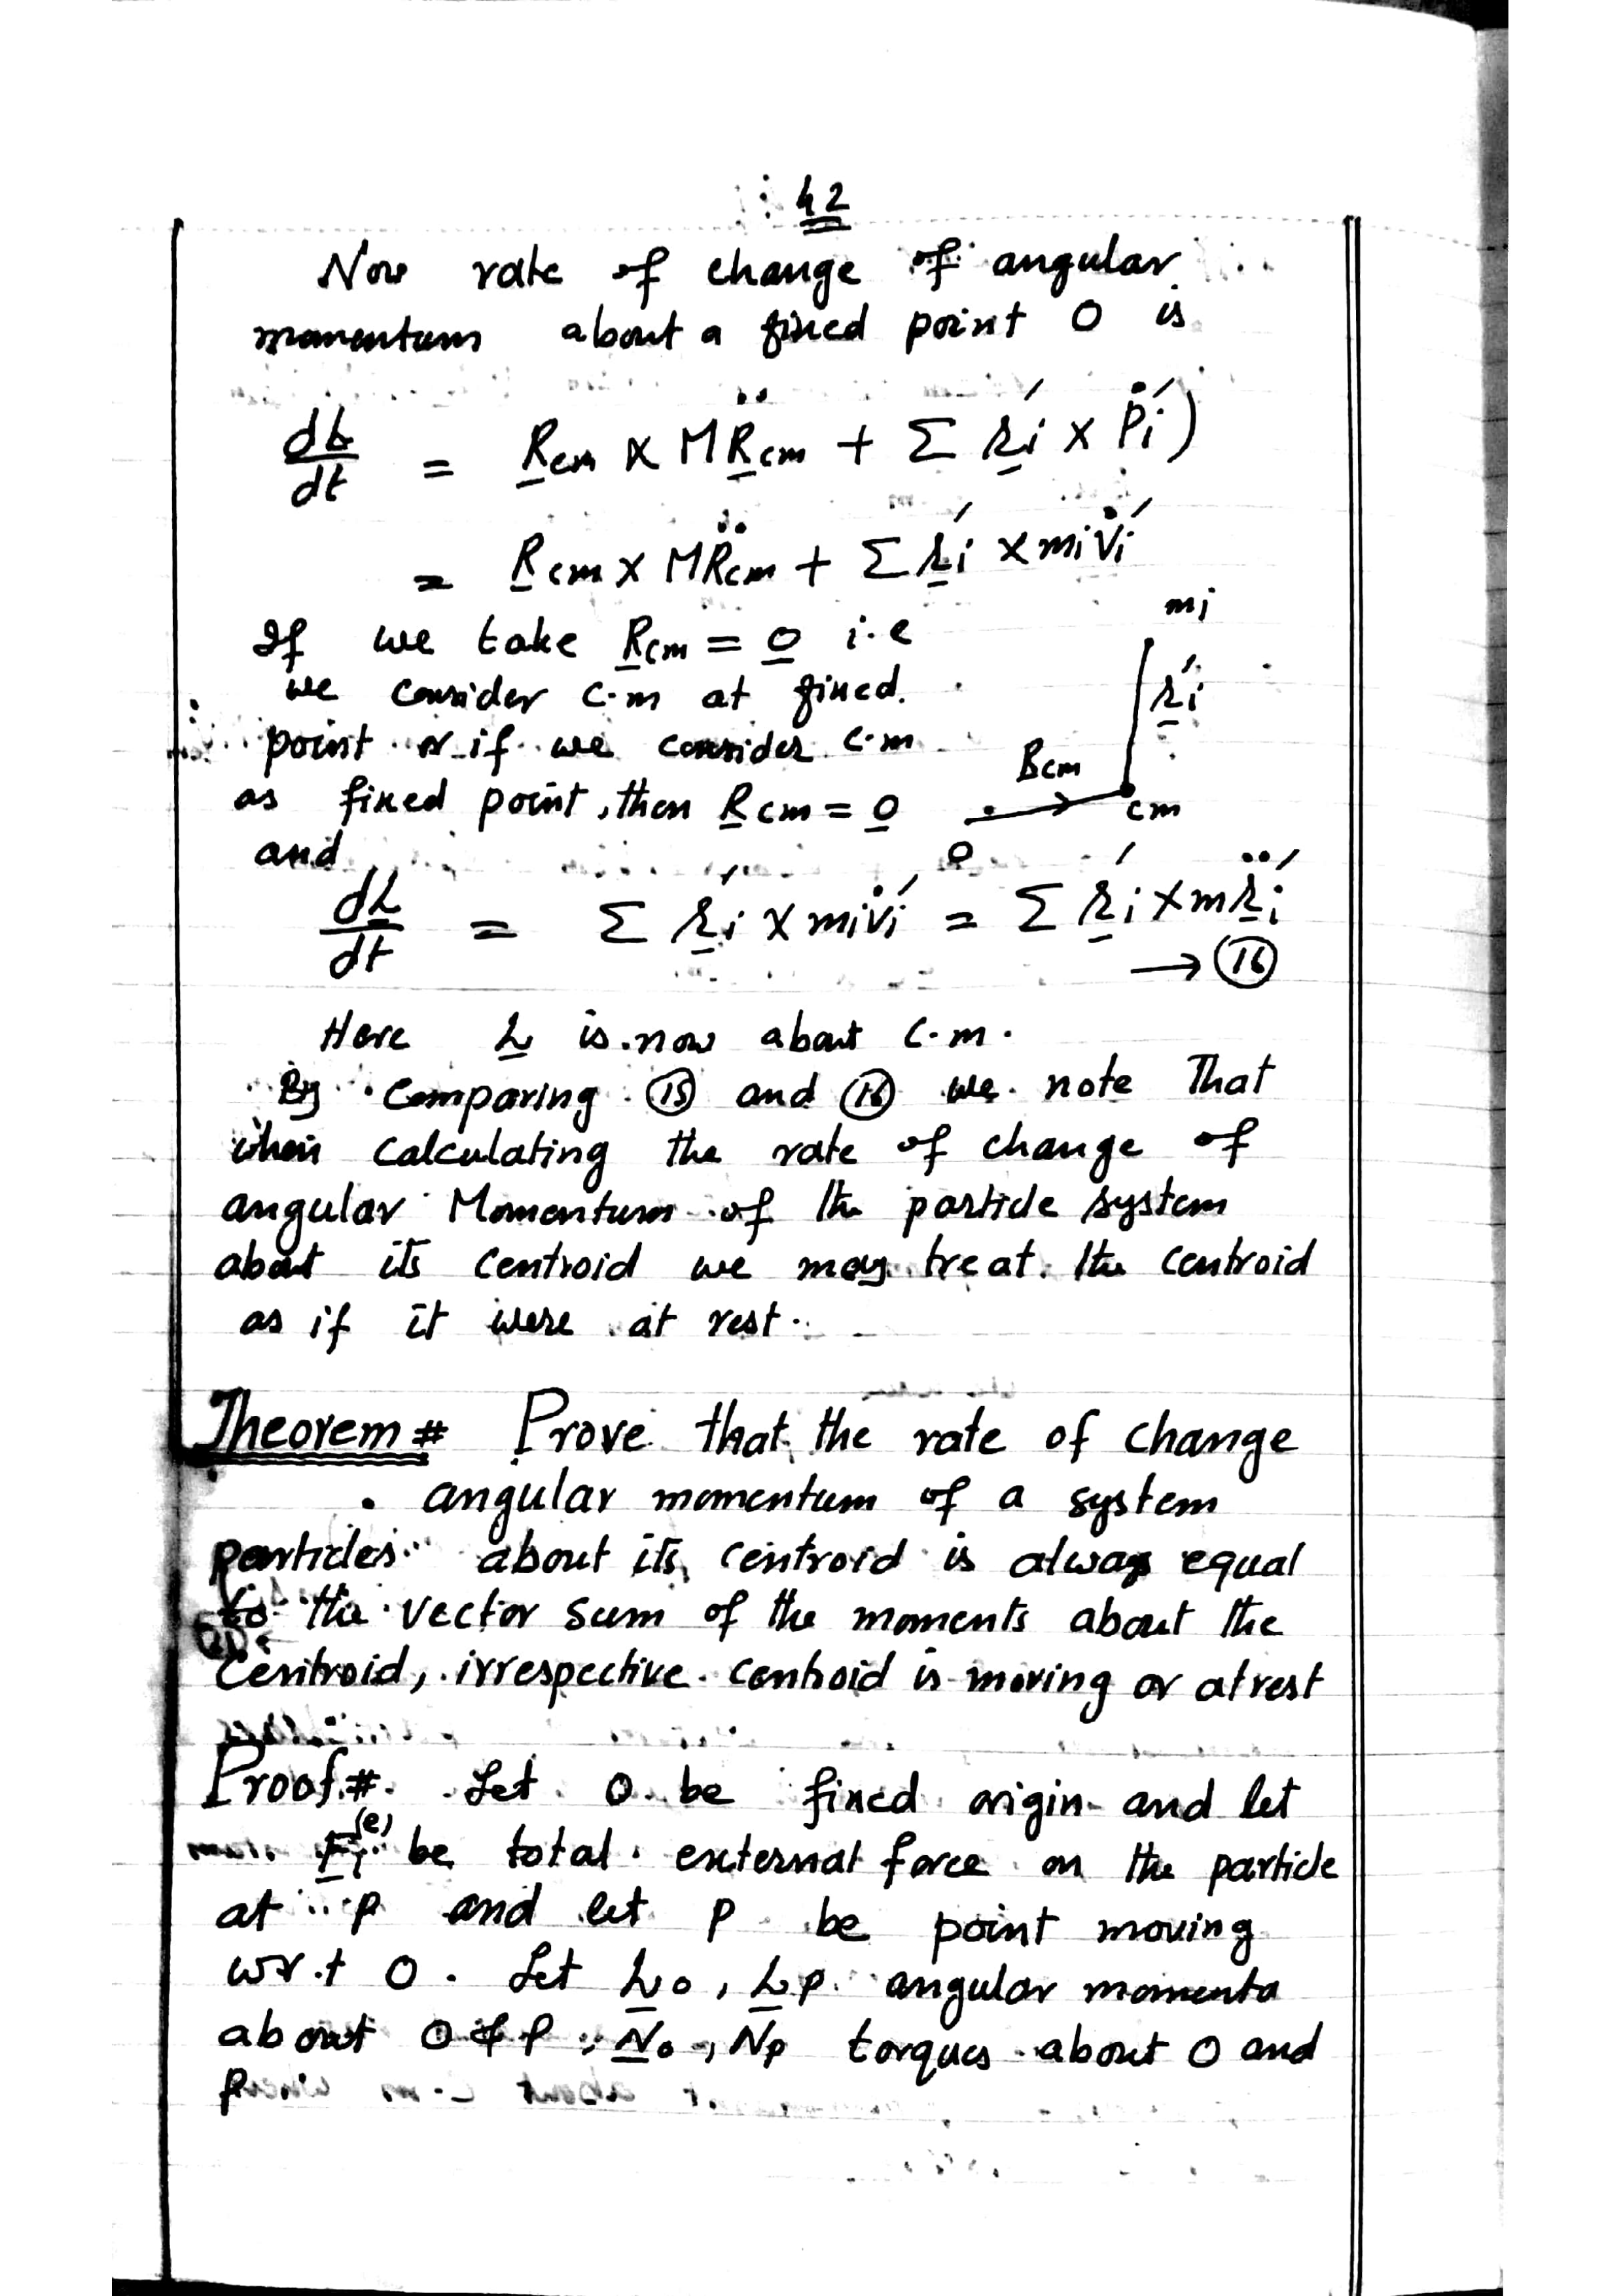 42
Now rate of change of angular
momentum about a fixed point O is
dL/dt = R̲cm × MR̲̈cm + Σ r̲í × Ṗí)
= R̲cm × MR̈cm + Σ r̲í × mi v̇í
mi
If we take R̲cm = 0̲ i.e
we consider C.m at fixed
r̲í
point or if we consider C.m
Rcm
as fixed point, then R̲cm = 0̲
cm
O
and
dL̲/dt = Σ r̲í × mi v̇í = Σ r̲í × m r̲̈í
→ (16)
Here L̲ is now about C.m.
By Comparing (15) and (16) we note That
when Calculating the rate of change of
angular Momentum of the particle system
about its Centroid we may treat the Centroid
as if it were at rest.
Theorem # Prove that the rate of change
angular momentum of a system
particles about its centroid is always equal
to the vector sum of the moments about the
Centroid, irrespective centroid is moving or at rest
Proof # Let O be fixed origin and let
F̲i(e) be total external force on the particle
at P and let P be point moving
w.r.t O. Let L̲o, L̲p angular momenta
about O & P, N̲o, Np torques about O and
P